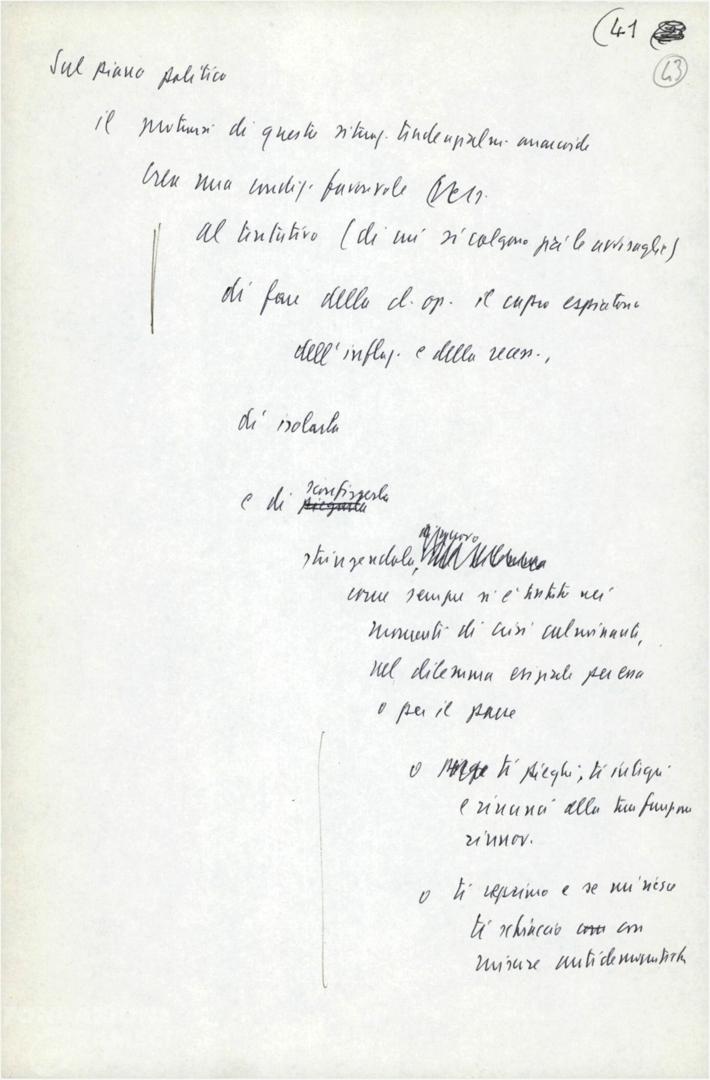 (41
43
Sul piano politico
il protrarsi di questa situaz. tendenzialm. anarcoide
crea una condiz. favorevole
al tentativo (di cui si colgono già le avvisaglie)
di fare della cl. op. il capro espiatorio
dell'inflaz. e della recess.,
di isolarla
e di sconfiggerla
piegarla
di nuovo
stringendola,
come sempre si è tentato nei
momenti di crisi culminanti,
nel dilemma esiziale per essa
o per il paese
o ti pieghi, ti integri
e rinunci alla tua funzione
rinnov.
o ti reprimo e se mi riesce
ti schiaccio con con
misure antidemocratiche